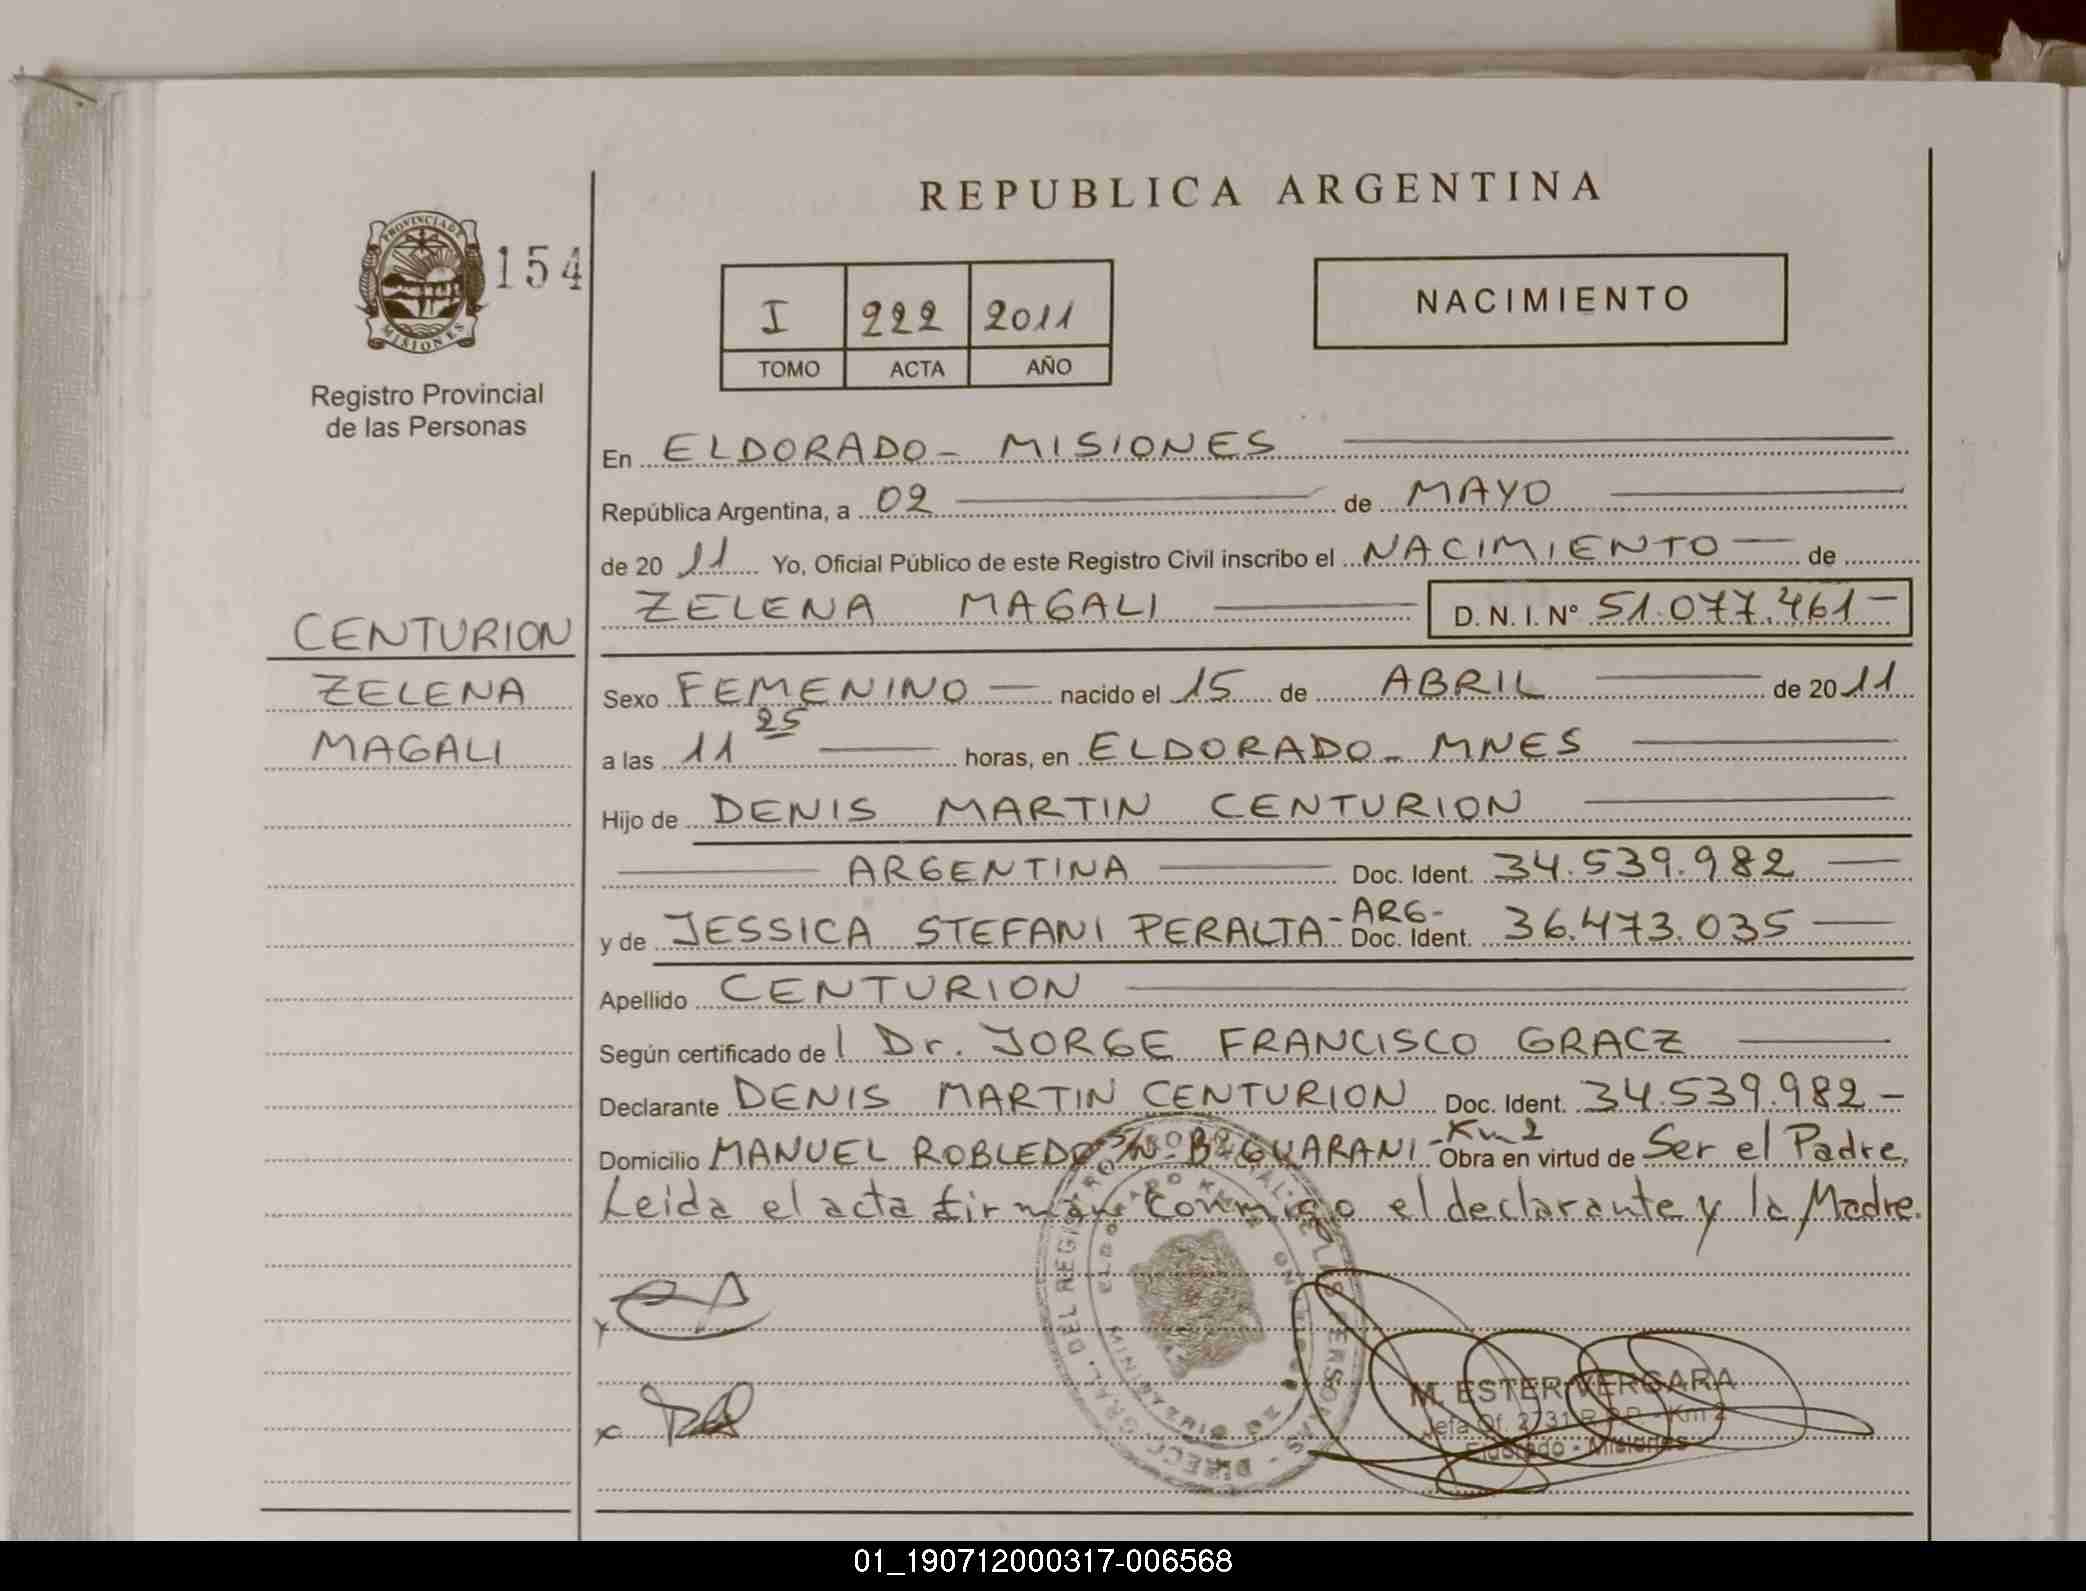 REPUBLICA ARGENTINA
PROVINCIA DE
MISIONES
154
Registro Provincial
de las Personas
I 222 2011
TOMO ACTA AÑO
NACIMIENTO
En ELDORADO - MISIONES
República Argentina, a 02 de MAYO
de 20 11 Yo, Oficial Público de este Registro Civil inscribo el NACIMIENTO de
ZELENA MAGALI D. N. I. Nº 51.077.461-
CENTURION
ZELENA
MAGALI
Sexo FEMENINO nacido el 15 de ABRIL de 20 11
a las 11 25 horas, en ELDORADO - MNES
Hijo de DENIS MARTIN CENTURION
ARGENTINA Doc. Ident. 34.539.982
y de JESSICA STEFANI PERALTA - ARG- Doc. Ident. 36.473.035
Apellido CENTURION
Según certificado de l Dr. JORGE FRANCISCO GRACZ
Declarante DENIS MARTIN CENTURION Doc. Ident. 34.539.982 -
Domicilio MANUEL ROBLEDO S/Nº Bº GUARANI - Km 2 Obra en virtud de Ser el Padre.
Leida el acta firman conmigo el declarante y la Madre.
DIRECC. GRAL. DEL REGISTRO PROVINCIAL DE LAS PERSONAS
ELDORADO KM 2
M. ESTER VERGARA
Jefa Of. 2731 R.P.P. - Km 2
Eldorado - Misiones
01_190712000317-006568